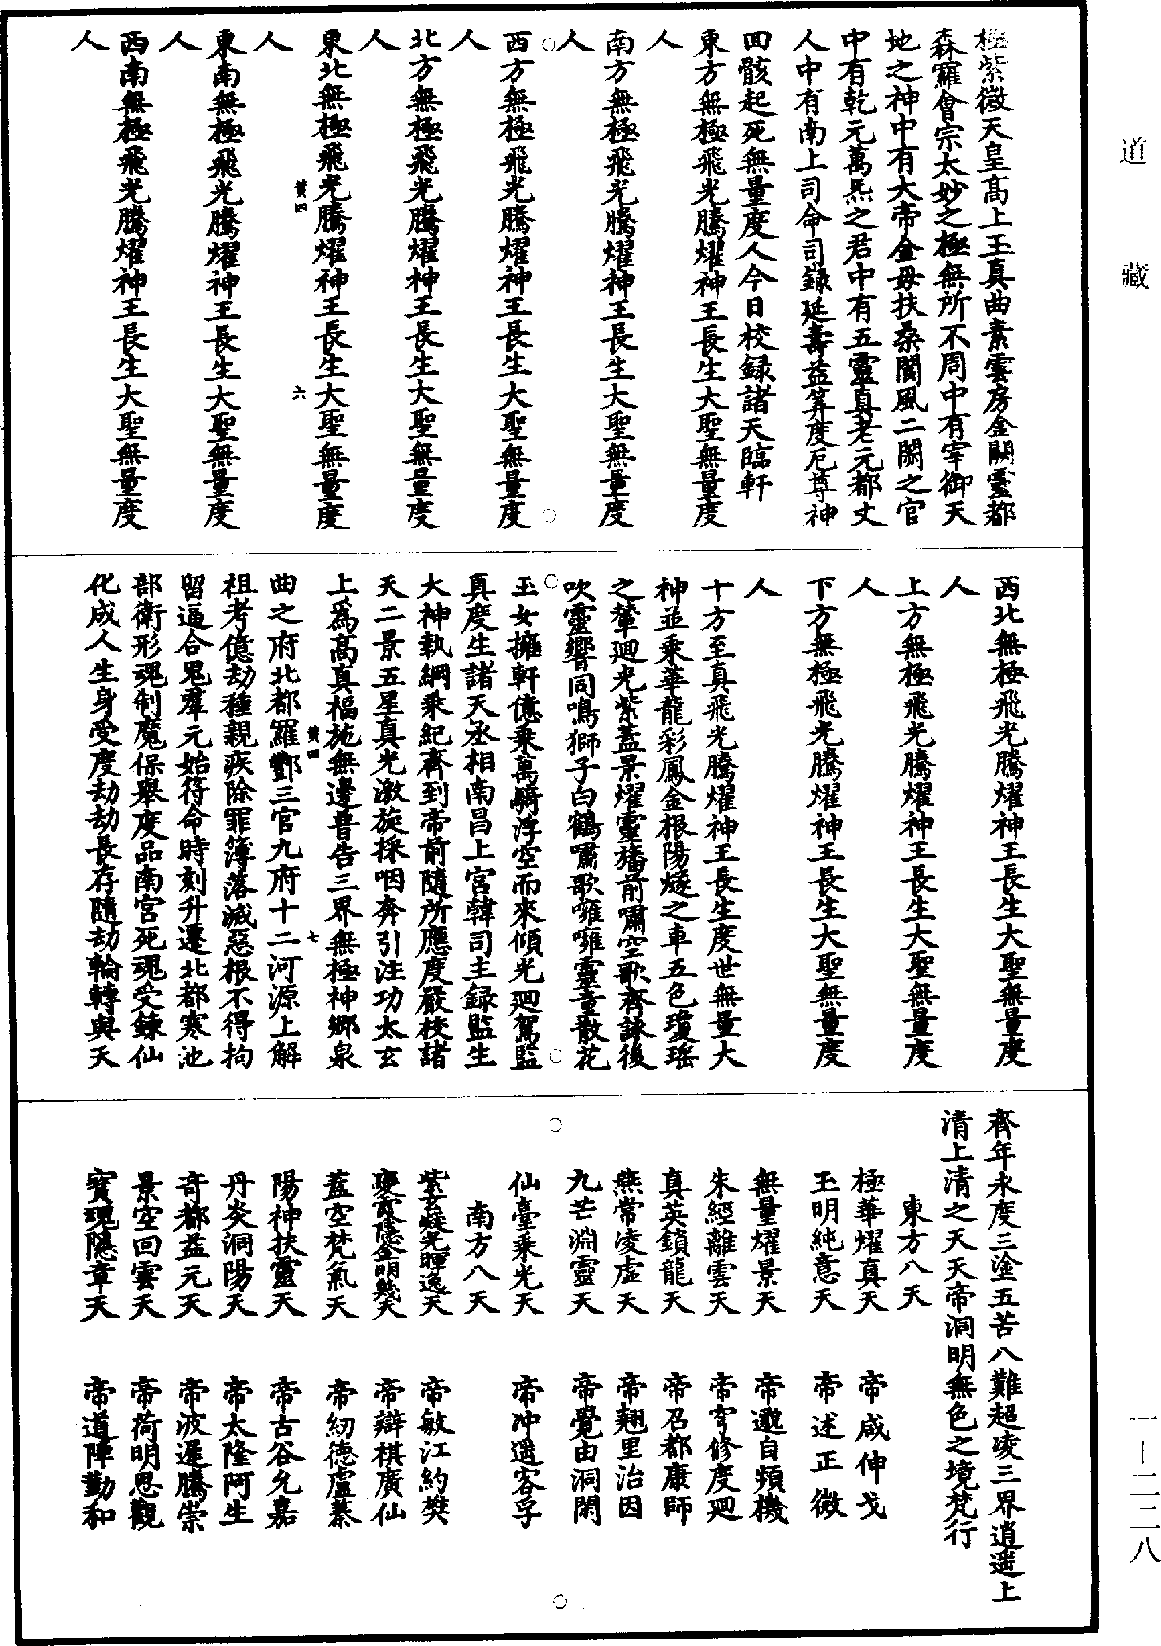 極紫微天皇高上玉真曲素雲房金闕靈都
森羅會宗太妙之極無所不周中有宰御天
地之神中有大帝金母扶桑閬風二闕之官
中有乾元萬炁之君中有五靈真老元都丈
人中有南上司命司錄延壽益算度厄尊神
回骸起死無量度人今日校錄諸天臨軒
東方無極飛光騰耀神王長生大聖無量度
人
南方無極飛光騰耀神王長生大聖無量度
人
西方無極飛光騰耀神王長生大聖無量度
人
北方無極飛光騰耀神王長生大聖無量度
人
東北無極飛光騰耀神王長生大聖無量度
黃四 六
人
東南無極飛光騰耀神王長生大聖無量度
人
西南無極飛光騰耀神王長生大聖無量度
人
西北無極飛光騰耀神王長生大聖無量度
人
上方無極飛光騰耀神王長生大聖無量度
人
下方無極飛光騰耀神王長生大聖無量度
人
十方至真飛光騰耀神王長生度世無量大
神並乘華龍彩鳳金根陽燧之車五色瓊瑤
之輦迴光紫蓋景耀靈旛前嘯空歌齊詠後
吹靈響同鳴獅子白鶴嘯歌嗈嗈靈童散花
玉女擁軒億乘萬騎浮空而來傾光迴駕監
真度生諸天丞相南昌上宮韓司主錄監生
大神執綱乘紀齊到帝前隨所應度嚴校諸
天二景五星真光激旋採咽奔引注功太玄
上爲高真福施無邊普告三界無極神鄉泉
黃四 七
曲之府北都羅酆三官九府十二河源上解
祖考億劫種親疾除罪簿落滅惡根不得拘
留逼合鬼羣元始符命時刻升遷北都寒池
部衛形魂制魔保舉度品南宮死魂受鍊仙
化成人生身受度劫劫長存隨劫輪轉與天
齊年永度三塗五苦八難超凌三界逍遥上
清上清之天天帝洞明無色之境梵行
東方八天
極華耀真天 帝咸伸戈
玉明純意天 帝述正微
無量耀景天 帝遨自頻機
朱經離雲天 帝穹修度迴
真英鎖龍天 帝召都康師
燕常凌虛天 帝翹里治因
九芒淵靈天 帝覺由洞開
仙臺乘光天 帝冲遥客孚
南方八天
紫玄燧光暉逸天 帝敏江約奘
陰金明幾天 帝辯棋廣仙
蓋空梵氣天 帝紉德盧綦
陽神扶靈天 帝古谷允嘉
丹炎洞陽天 帝太隆阿生
奇都益元天 帝波遲騰崇
景空回雲天 帝荷明恩觀
寶現隱章天 帝道陣勤和
道藏
一—二二八